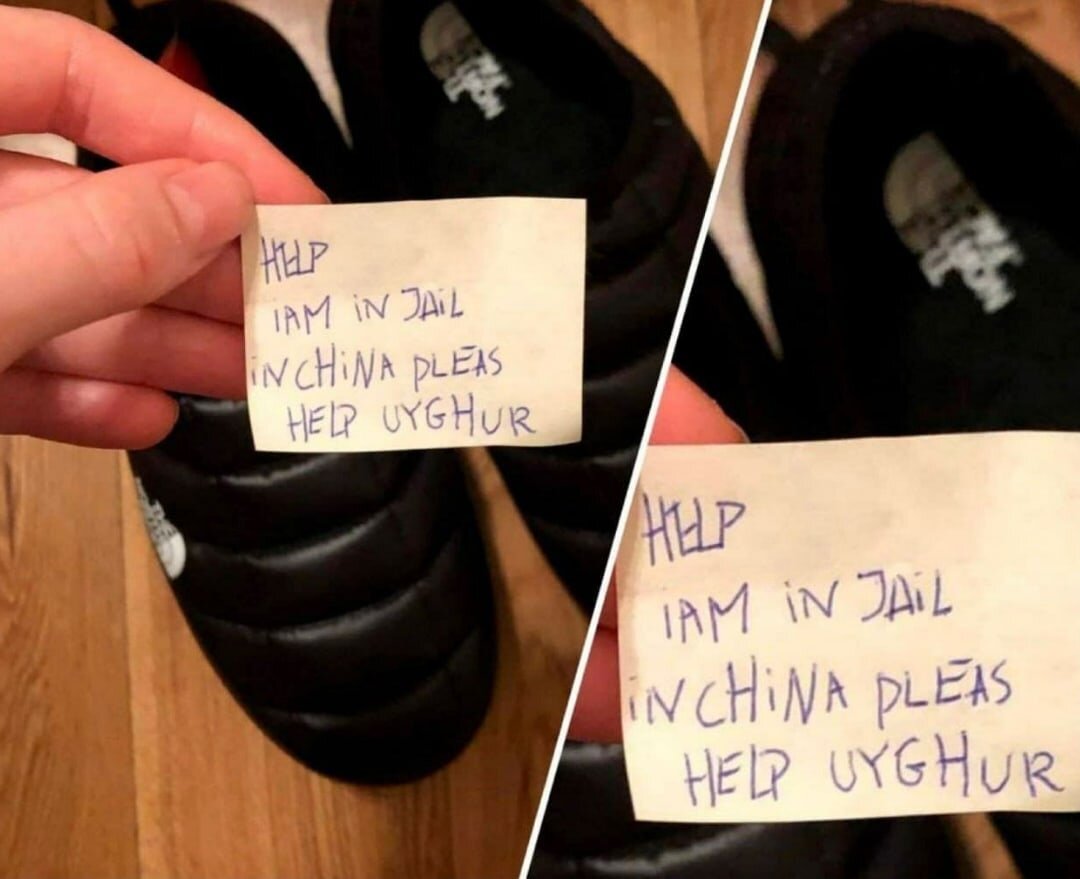 HELP
IAM iN JAiL
iN CHiNA PLEAS
HELP UYGHUR
HELP
IAM iN JAiL
iN CHiNA PLEAS
HELP UYGHUR